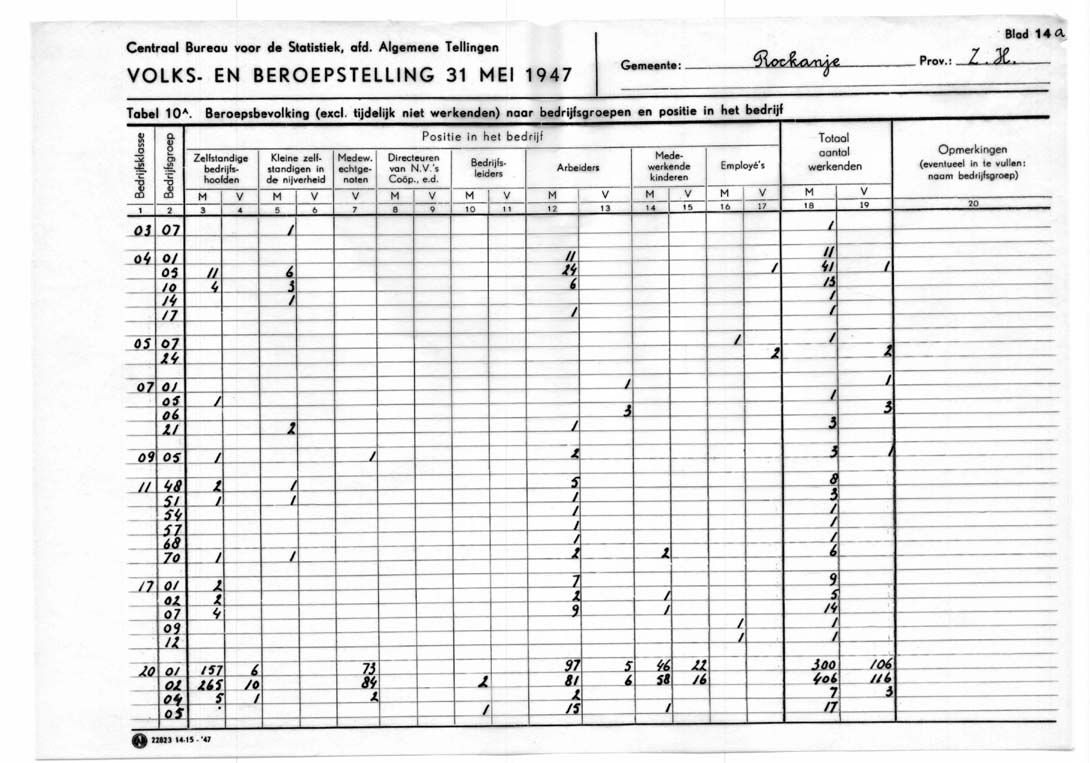 Blad 14 a
Centraal Bureau voor de Statistiek, afd. Algemene Tellingen
VOLKS- EN BEROEPSTELLING 31 MEI 1947
Gemeente: Rockanje Prov.: Z. H.
Tabel 10^. Beroepsbevolking (excl. tijdelijk niet werkenden) naar bedrijfsgroepen en positie in het bedrijf
Bedrijfsklasse
Bedrijfsgroep
Positie in het bedrijf
Zelfstandige bedrijfs- hoofden
Kleine zelf- standigen in de nijverheid
Medew. echtge- noten
Directeuren van N.V.'s Coöp., e.d.
Bedrijfs- leiders
Arbeiders
Mede- werkende kinderen
Employé's
Totaal aantal werkenden
Opmerkingen (eventueel in te vullen: naam bedrijfsgroep)
M V M V V M V M V M V M V M V M V
1 2 3 4 5 6 7 8 9 10 11 12 13 14 15 16 17 18 19 20
03 07 1 1
04 01 11 11
05 11 6 24 1 41 1
10 4 5 6 15
14 1 1
17 1 1
05 07 1 1
24 2 2
07 01 1 1
05 1 1
06 3 3
21 2 1 3
09 05 1 1 2 3 1
11 48 2 1 5 8
51 1 1 1 3
54 1 1
57 1 1
68 1 1
70 1 1 2 2 6
17 01 2 7 9
02 2 2 1 5
07 4 9 1 14
09 1 1
12 1 1
20 01 157 6 73 97 5 46 22 300 106
02 265 10 84 2 81 6 58 16 406 116
04 5 1 2 2 7 3
05 1 15 1 17
22823 14-15 - '47